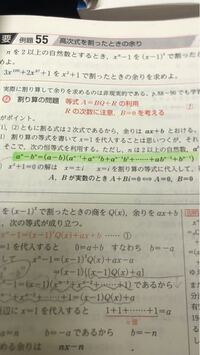 要 例題 55 高次式を割ったときの余り
nを2以上の自然数とするとき，xⁿ−1を(x−1)²で割ったときの
めよ。
3x¹⁰⁰+2x⁹⁷+1をx²+1で割ったときの余りを求めよ。
実際に割り算して余りを求めるのは非現実的である。
割り算の問題 等式 A=BQ+R の利用
Rの次数に注意，B=0を考える
がポイント。
(1)，(2)ともに割る式は2次式であるから，余りはax+bとおける。
割り算の等式を書いてx=1を代入することは思いつくが，それ
そこで，次の恒等式を利用する。ただし，nは2以上の自然数，
aⁿ−bⁿ=(a−b)(aⁿ⁻¹+aⁿ⁻²b+aⁿ⁻³b²+……+abⁿ⁻²+bⁿ⁻¹)
x²+1=0の解は x=±i x=iを割り算の等式に代入して，
A，Bが実数のとき A+Bi=0⇔A=0，B=0
(x−1)²で割ったときの商をQ(x)，余りをax+b
次の等式が成り立つ。
xⁿ−1=(x−1)²Q(x)+ax+b ……①
を代入すると 0=a+b すなわち b=−a
辺に x=1 を代入すると 1+1+……+1=a
a=n b=−aであるから b=−n
める余りは nx−n